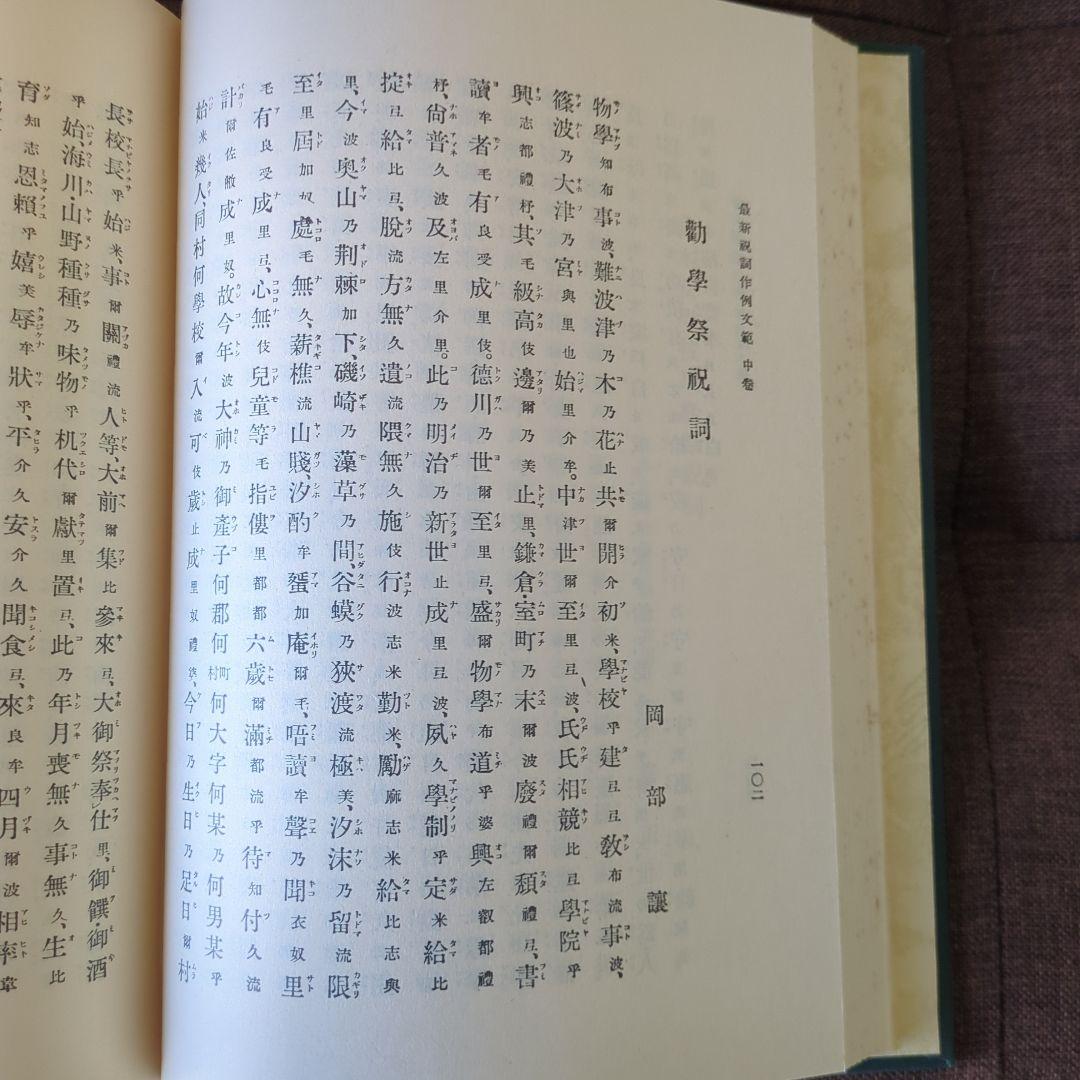 最新祝詞作例文範 中卷
一〇二
勸學祭祝詞
岡部讓
物學知布事波、難波津乃木乃花止共爾開介初米、學校乎建弖弖敎布流事波、
篠波乃大津乃宮與里也始里介牟。中津世爾至里弖波、氏氏相競比弖學院乎
興志都禮杼、其毛級高伎邊爾乃美止里、鎌倉・室町乃末爾波廢禮爾頽禮弖、書
讀牟者毛有良受成里伎。德川乃世爾至里弖、盛爾物學布道乎婆興左叡都禮
杼、尙普久波及左里介里。此乃明治乃新世止成里弖波、夙久學制乎定米給比
掟弖給比弖、脫流方無久遺流隈無久施伎行波志米勤米、勵廊志米給比志與
里、今波奧山乃荆棘加下、磯崎乃藻草乃間、谷蟆乃狹渡流極美、汐沫乃留流限
至里屆加奴處毛無久、薪樵流山賤、汐酌牟蜑加庵爾毛、唔讀牟聲乃聞衣奴里
毛有良受成里弖、心無伎兒童等毛指僂里都都六歲爾滿都流乎待知付久流
計爾佐敝成里奴。故今年波大神乃御產子何郡何町村何大字何某乃何男某乎
始米幾人、同村何學校爾入流可伎歲止成里奴禮婆、今日乃生日乃足日爾村
長校長乎始米、事爾關禮流人等、大前爾集比參來弖、大御祭奉仕里、御饌・御酒
乎始、海川・山野種種乃味物乎机代爾獻里置弖、此乃年月喪無久事無久、生比
育知志恩賴乎嬉美辱牟狀乎、平介久安介久聞食弖、來良牟四月爾波相率韋